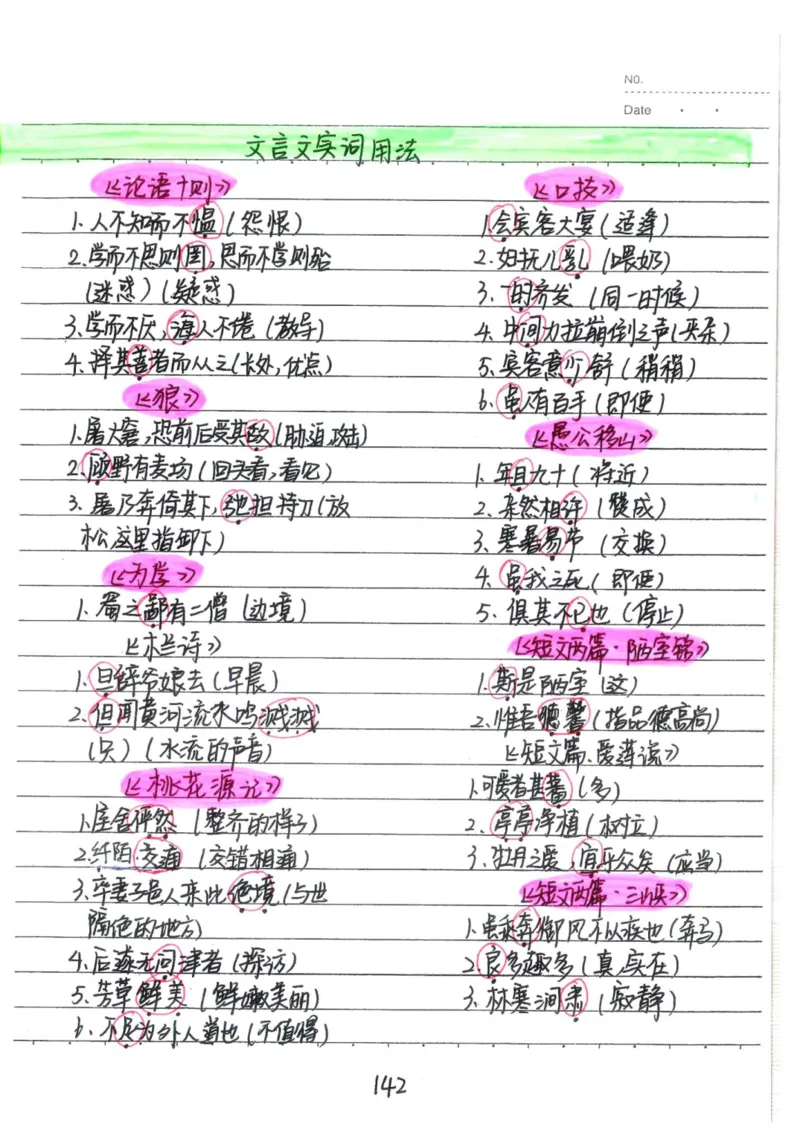 NO.
Date
文言文实词用法
《论语十则》
1.人不知而不愠(怨恨)
2.学而不思则罔,思而不学则殆
(迷惑)(疑惑)
3.学而不厌,诲人不倦(教导)
4.择其善者而从之(长处,优点)
《狼》
1.屠大窘,恐前后受其敌(胁迫,攻击)
2.顾野有麦场(回头看,看见)
3.屠乃奔倚其下,弛担持刀(放
松,这里指卸下)
《为学》
1.蜀之鄙有二僧(边境)
《木兰诗》
1.旦辞爷娘去(早晨)
2.但闻黄河流水鸣溅溅
(只)(水流的声音)
《桃花源记》
1.屋舍俨然(整齐的样子)
2.阡陌交通(交错相通)
3.率妻子邑人来此绝境(与世
隔绝的地方)
4.后遂无问津者(探访)
5.芳草鲜美(鲜嫩美丽)
6.不足为外人道也(不值得)
《口技》
1.会宾客大宴(适逢)
2.妇抚儿乳(喂奶)
3.一时齐发(同一时候)
4.中间力拉崩倒之声(夹杂)
5.宾客意少舒(稍稍)
6.虽人有百手(即使)
《愚公移山》
1.年且九十(将近)
2.杂然相许(赞成)
3.寒暑易节(交换)
4.虽我之死(即使)
5.俱其不已也(停止)
《短文两篇·陋室铭》
1.斯是陋室(这)
2.惟吾德馨(指品德高尚)
《短文篇.爱莲说》
1.可爱者甚蕃(多)
2.亭亭净植(树立)
3.牡丹之爱,宜乎众矣(应当)
《短文两篇·三峡》
1.虽乘奔御风不以疾也(奔马)
2.良多趣多(真,实在)
3.林寒涧肃(寂静)
142